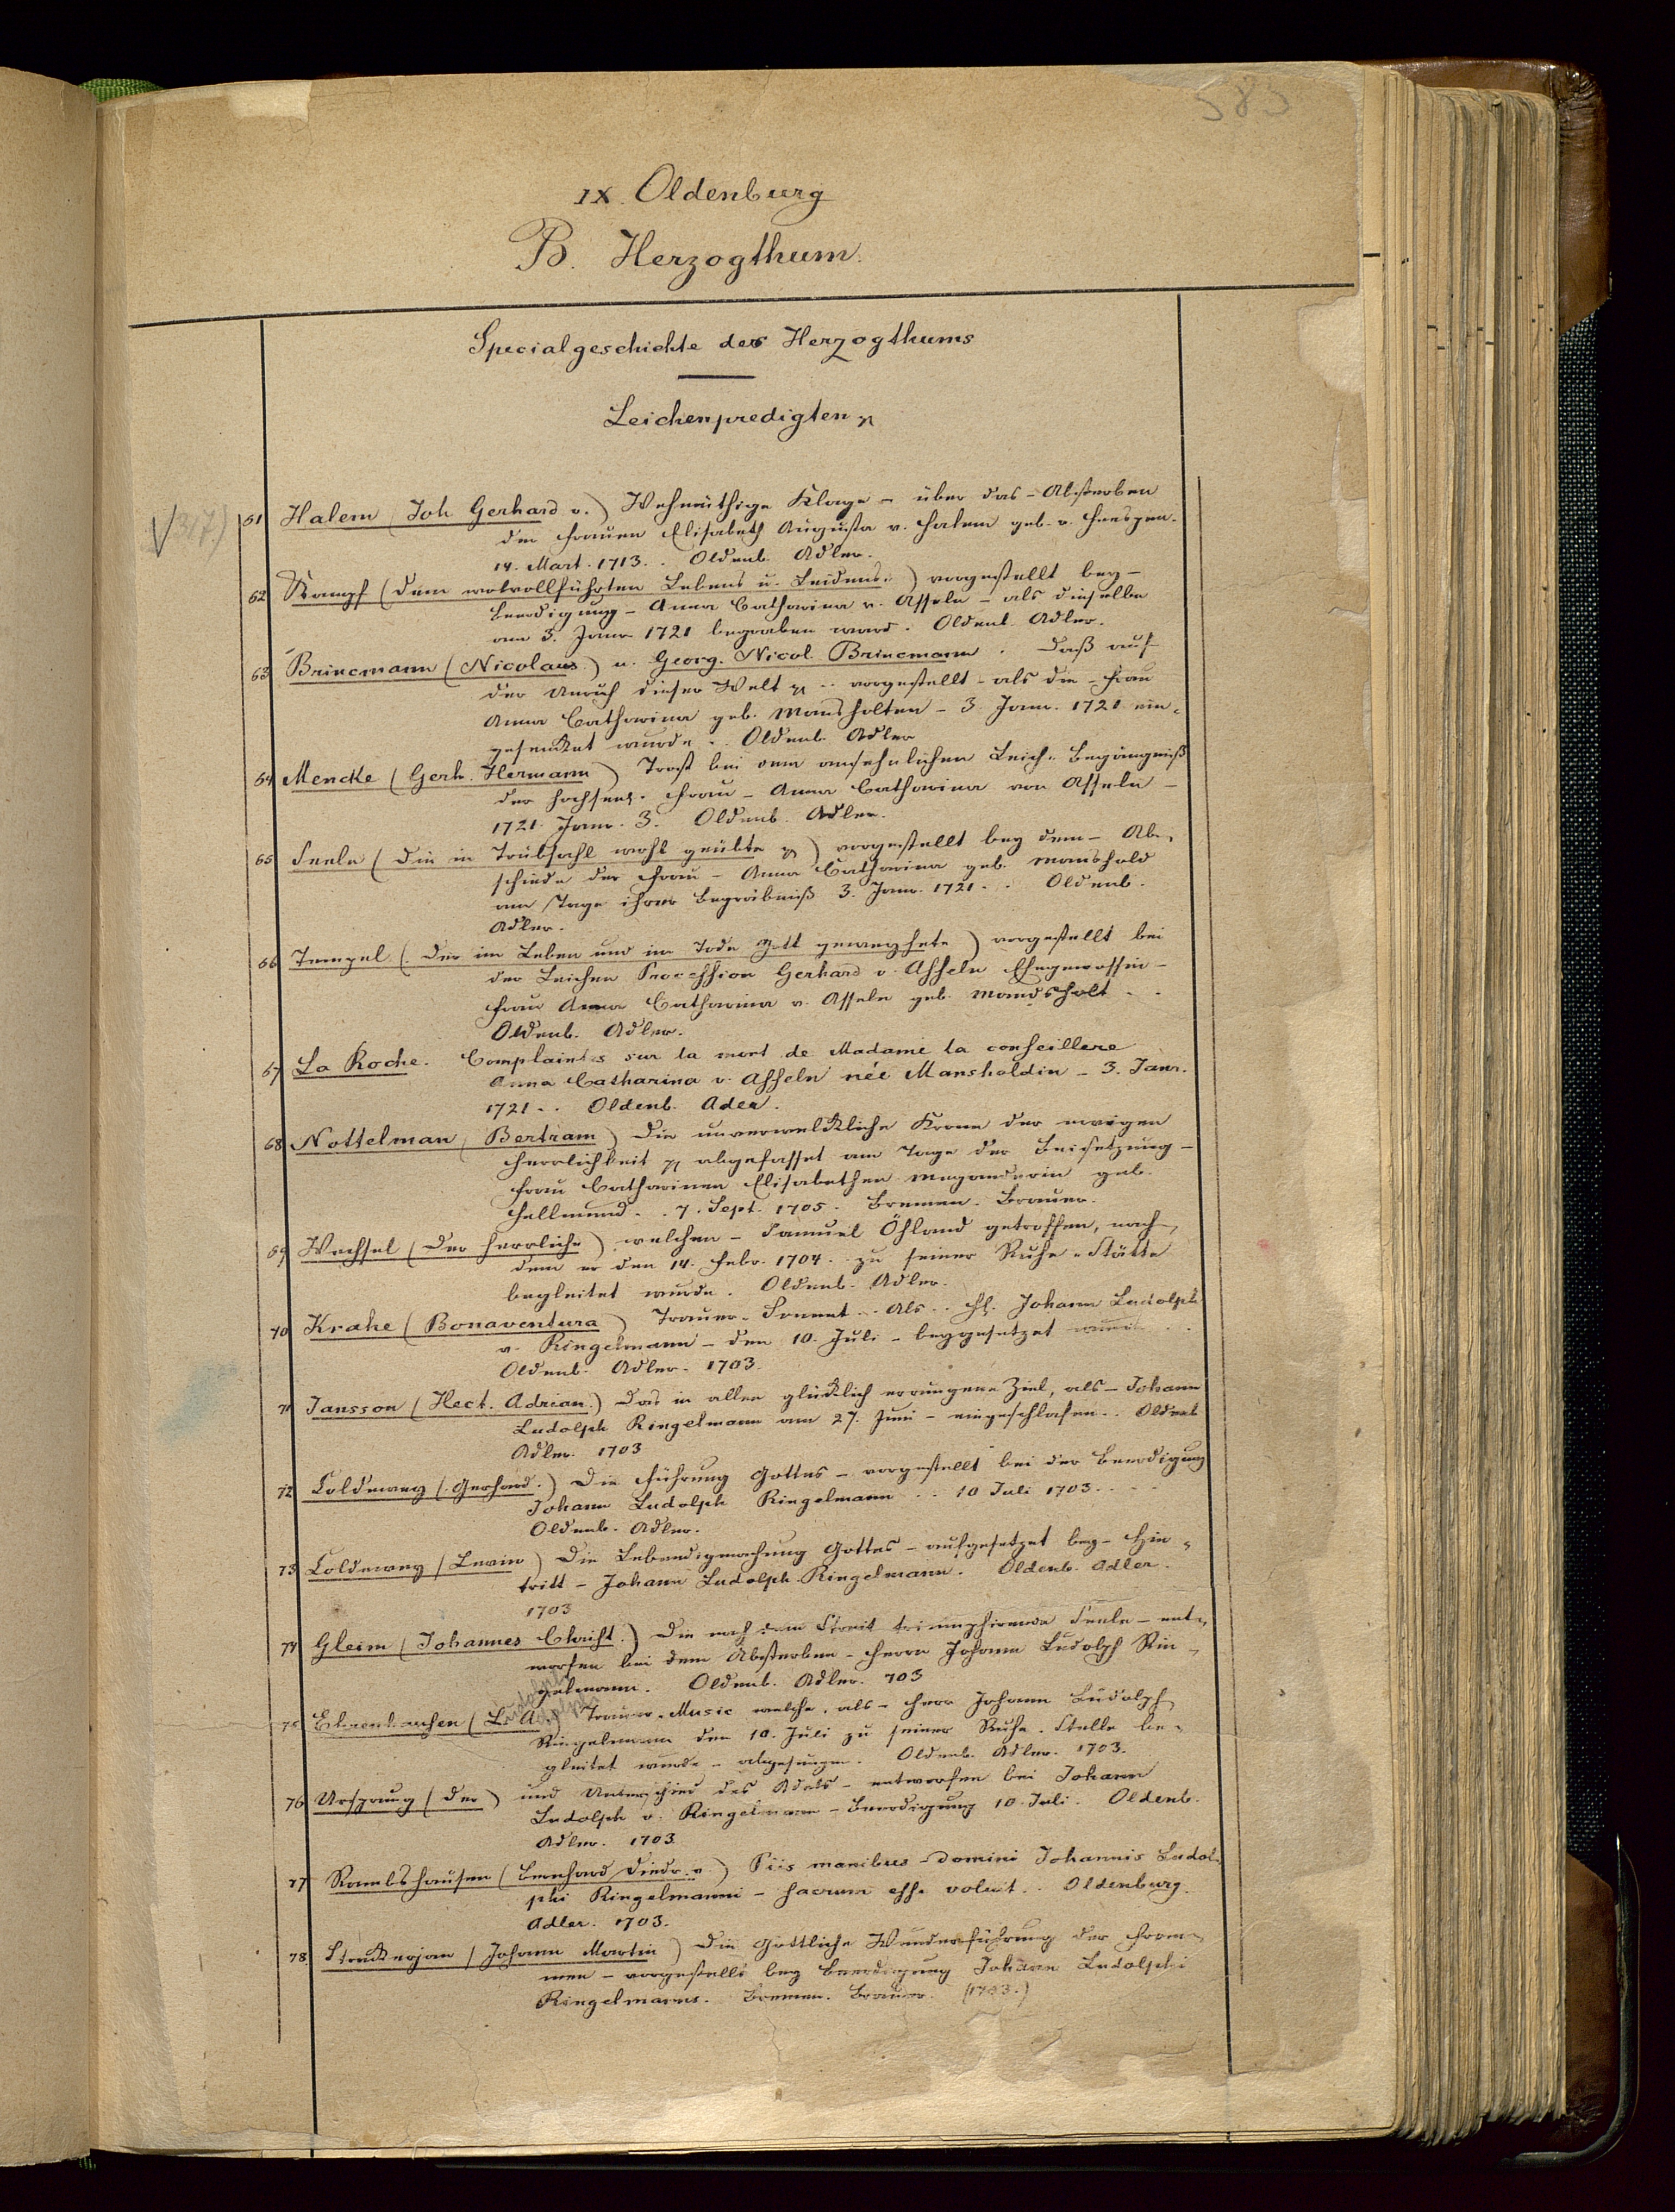 583
IX. Oldenburg
B. Herzogthum.
Specialgeschichte des Herzogthums
Leichenpredigten
61 Halem (Joh. Gerhard v.) Wehmüthige Klage – über das – Absterben
der Frauen Elisabeth Augusta v. Halem geb. v. Heespen.
14. Mart. 1713. . Oldenb. Adler.
62 Kampf (dem wolvollführten Lebens u. Leidens-) vorgestellt bey –
Beerdigung – Anna Catharina v. Asseln – als dieselbe
am 3. Janr. 1721 begraben ward. Oldenb. Adler.
63 Brincmann (Nicolaus) u. Georg. Nicol. Brincmann. Daß auf
der Unruh dieser Welt .. vorgestellt – als die – Frau
Anna Catharina geb. Mansholten – 3. Janr. 1721 ein-
gesenket wurde .. Oldenb. Adler
64 Mencke (Gerh. Hermann) Trost bei dem ansehnlichen Leich-Begängniß
der Hochseel. Frau – Anna Catharina von Asseln –
1721. Janr. 3. Oldenb. Adler.
65 Seele (die in Trübsahl wohl geübte) vorgestellt bey dem – Ab-
schiede der Frau – Anna Catharina geb. Manshold
am Tage ihrer Begräbniß 3. Janr. 1721. .. Oldenb.
Adler.
66 Tempel (Der im Leben und im Tode Gott geweyhete) vorgestellt bei
der Leichen Procession Gerhard v. Asseln Ehegenossin –
Frau Anna Catharina v. Asseln geb. Mandsholt ..
Oldenb. Adler.
67 La Roche. Complaintes sur la mort de Madame la conseillere
Anna Catharina v. Asseln née Mansholdin – 3. Janr.
1721 .. Oldenb. Adler.
68 Nottelman (Bertram) Die unverwelkliche Krone der ewigen
Herrlichkeit abgefasset am Tage der Beisetzung –
Frau Catharinen Elisabethen Meganderin geb.
Hellmund. . 7. Sept. 1705. Bremen. Brauer.
69 Wechsel (Der herrliche) welchen – Samuel Öhland getroffen, nach-
dem er den 14. Febr. 1704 .. zu seiner Ruhe-Stätte
begleitet wurde. Oldenb. Adler.
70 Krahe (Bonaventura) Trauer-Sonnet .. Als .. H. Johann Ludolph
v. Ringelmann – den 10. Juli – beygesetzet wurde ..
Oldenb. Adler. 1703.
71 Jansson (Hect. Adrian.) Das in allen glücklich errungene Ziel, als – Johann
Ludolph Ringelmann am 27. Juni – eingeschlafen .. Oldenb.
Adler. 1703
72 Coldewey (Gerhard.) Die Führung Gottes – vorgestellt bei der Beerdigung
Johann Ludolph Ringelmann .. 10 Juli 1703 ....
Oldenb. Adler.
73 Coldewey (Levin) Die Lebendigmachung Gottes – aufgesetzet bey – Hin-
tritt – Johann Ludolph Ringelmann. Oldenb. Adler.
1703
74 Gleim (Johannes Christ.) Die nach dem Streit triumphirende Seele – ent-
worfen bei dem Absterben – Herrn Johann Ludolph Rin-
gelmann. Oldenb. Adler. 703
75 (L. A. Trauer-Music welche, als – Herr Johann Ludolph
Ringelmann den 10. Juli zu seiner Ruhe-Stelle be-
gleitet wurde – abgesungen. Oldenb. Adler. 1703.
76 Ursprung (Der) und Unterschied des Adels – entworfen bei Johann
Ludolph v. Ringelmann – Beerdigung 10. Juli. Oldenb.
Adler. 1703.
77 Rambshausen (Bernhard Diedr. v.) Piis manibus – domini Johannis Ludol-
phi Ringelmanni – sacrum esse voluit .. Oldenburg.
Adler. 1703.
78 Strackerjan (Johann Martin) Die Göttliche Wunderführung der From-
men – vorgestellt bey Beerdigung Johann Ludolphi
Ringelmanns. Bremen. Brauer. (1703.)